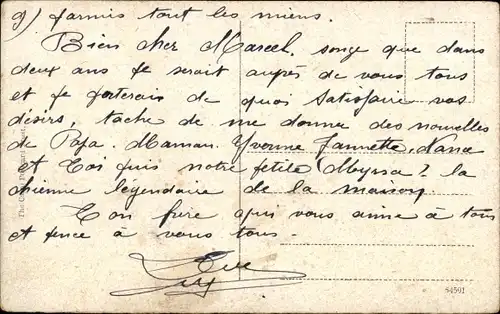 9) parmis tout les miens.
Bien cher Marcel, songe que dans
deux ans je serait auprès de vous tous
et je porterais de quoi satisfaire vos
désirs, tache de me donner des nouvelles
de Papa. Maman. Yvonne Jannette, Nana
et Toi puis notre petite Moyssa? la
chienne légendaire de la maison
Ton frère qui vous aime à tous
et pence à vous tous.
84591